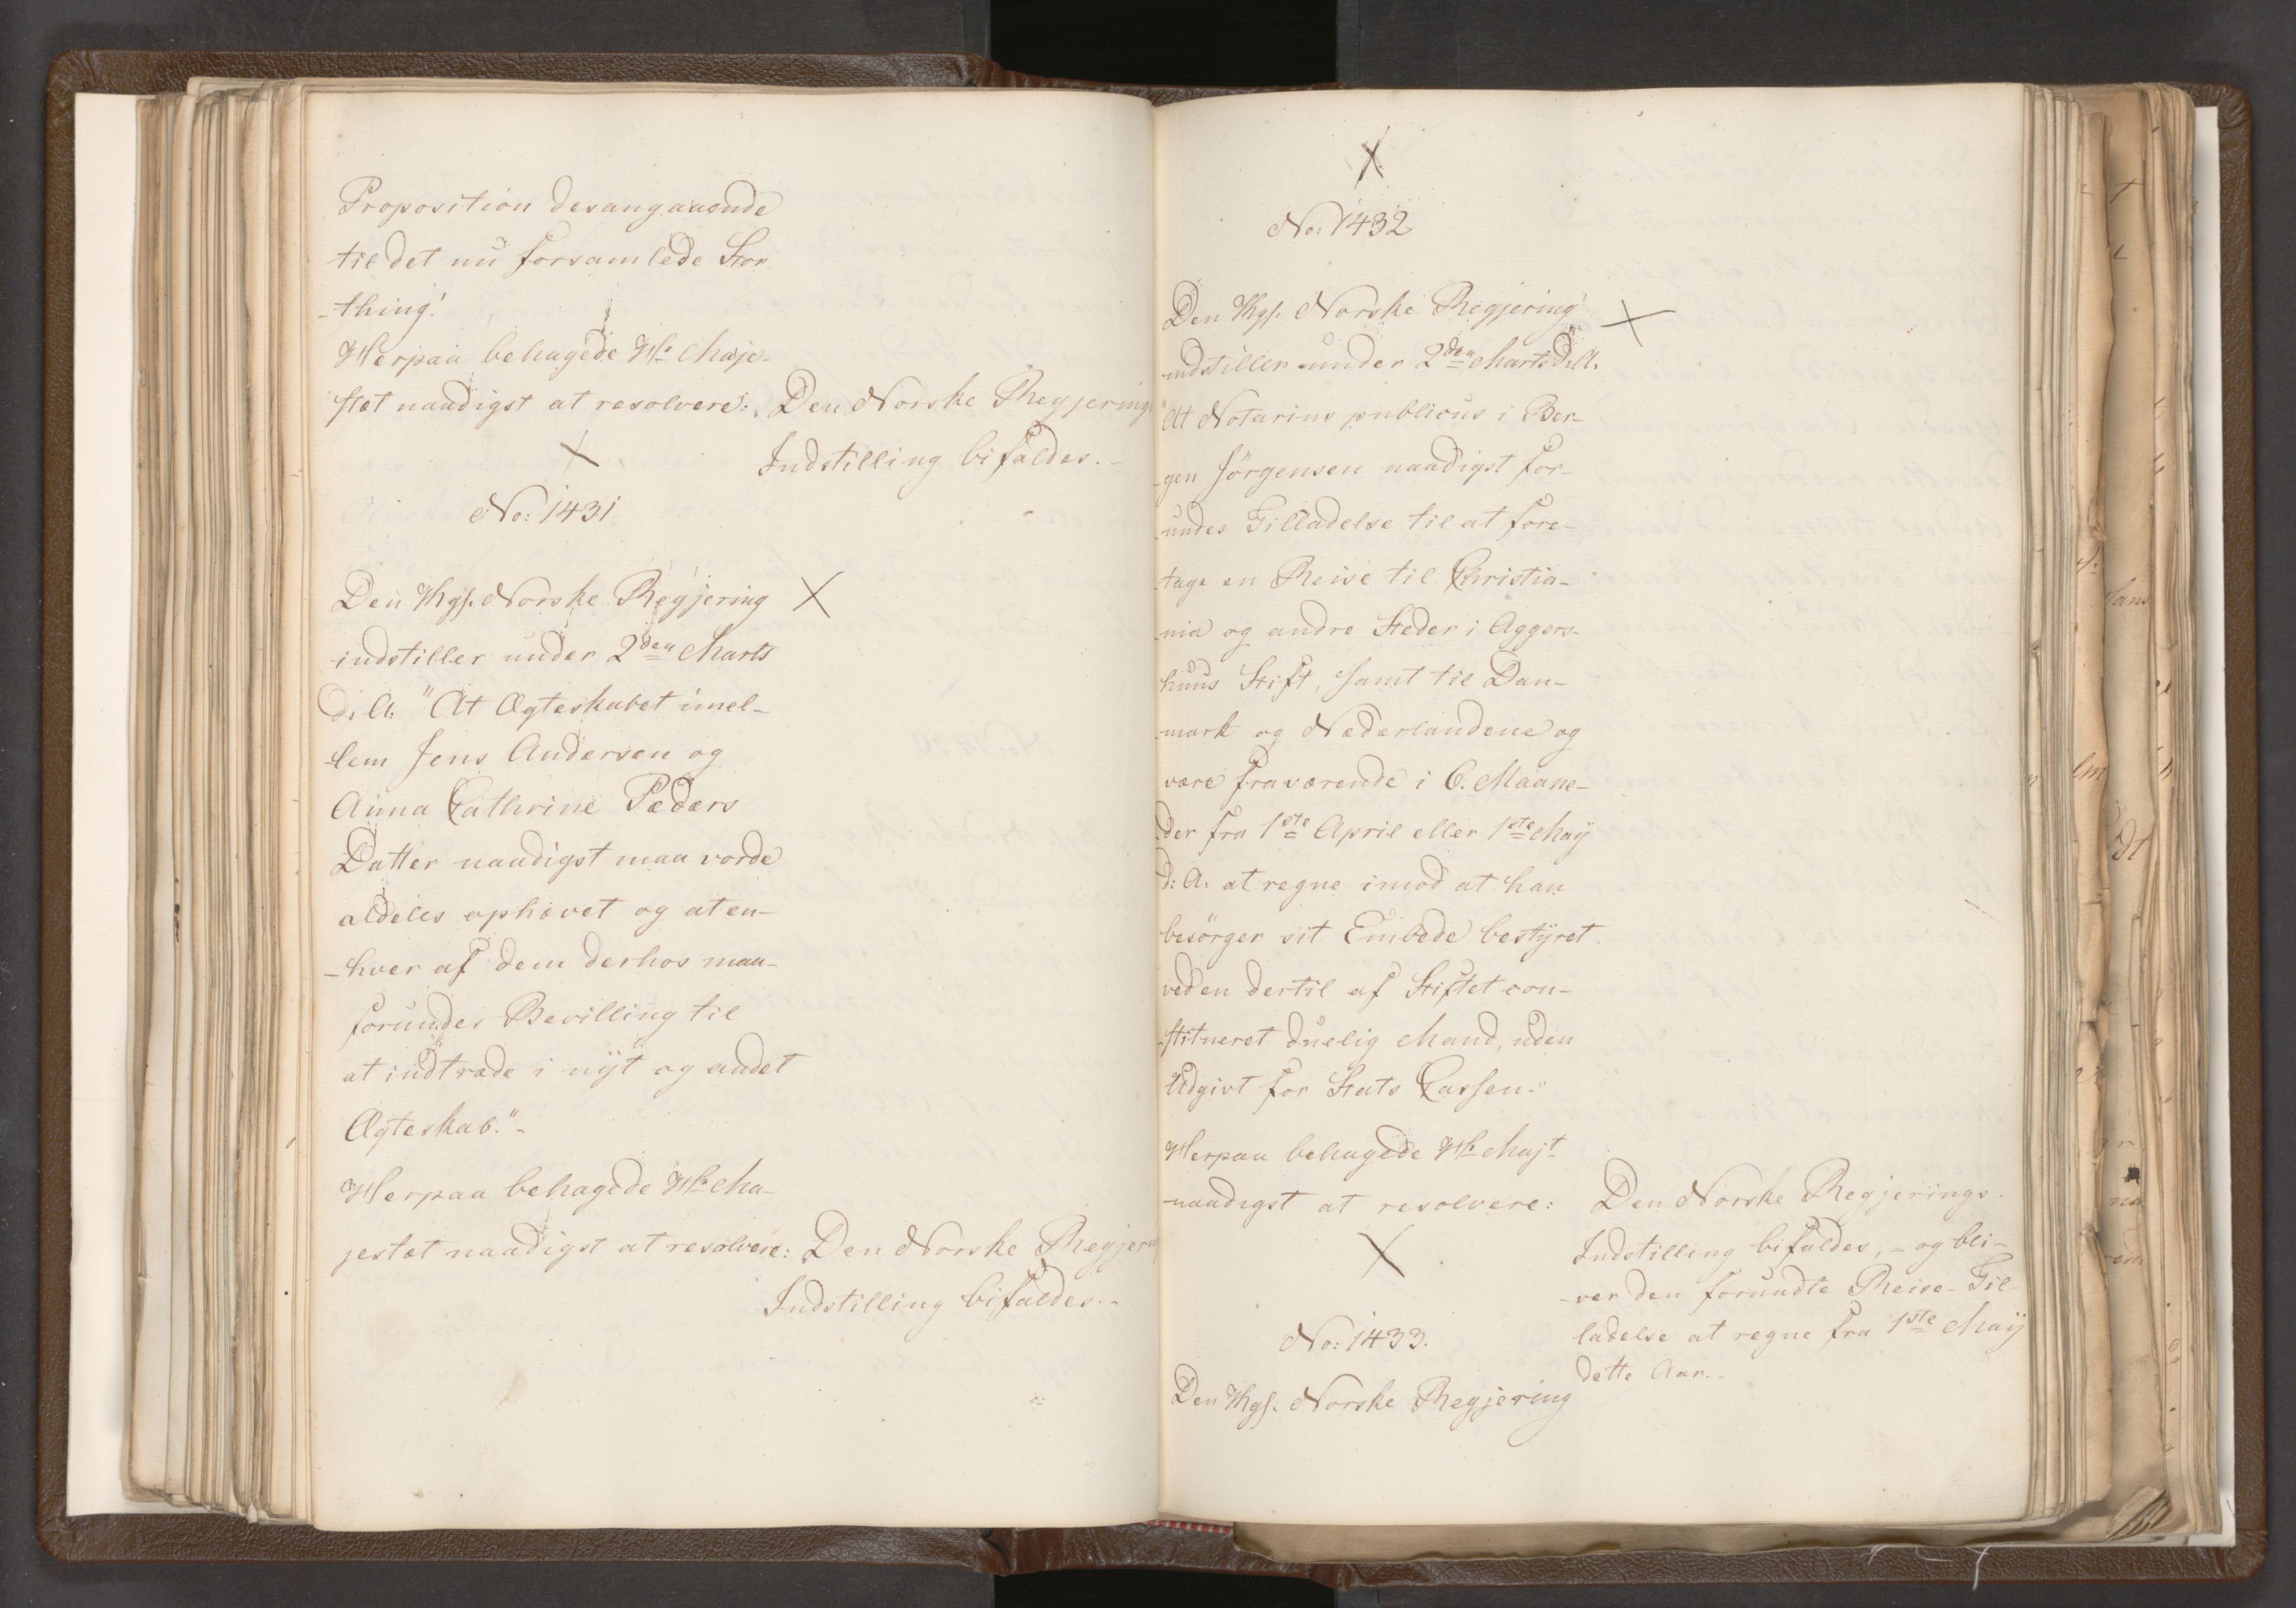 Proposition desangaaende
til det nu forsamlede Stor
-thing!
Herpaa behagede Hs Maje-
stæt naadigst at resolvere: Den Norske Regjerings
Indstilling bifaldes.-
No: 1431
Den Kgs. Norske Regjering
indstiller under 2den Marts
d: A: "At Ægteskabet imel-
-lem Jens Andersen og
Anna Cathrine Peders
Datter naadigst maa vorde
aldeles ophævet og at en-
-hver af dem derhos maa-
forundes Bevilling til
at indtræde i nÿt og andet
Ægteskab."-
Herpaa behagede Hs Ma-
jestæt naadigst at resolvere: Den Norske Regjer
Indstilling bifaldes.-
No: 1432
Den Kgs. Norske Regjering
indstiller under 2den Marts d. A.
"At Notarius publicus i Ber-
-gen Jörgensen naadigst for-
-undes Tilladelse til at fore-
-tage en Reise til Christia-
-nia og andre Steder i Aggers-
huus Stift, samt til Dan-
-mark og Nederlandene og
være fraværende i 6. Maane-
-der fra 1ste April eller 1ste Maÿ
d: A. at regne imod at han
besörger sit Embede bestÿret
ved en dertil af Stiftet con-
-stitueret duelig Mand, uden
Udgivt for Stats Cassen."
Herpaa behagede Hs Majt
naadigst at resolvere: Den Norske Regjerings
Indstilling bifaldes, - og bli-
-ver den forundte Reise-Til-
ladelse at regne fra 1ste Maÿ
dette Aar.-
No: 1433.
Den Kgs. Norske Regjering